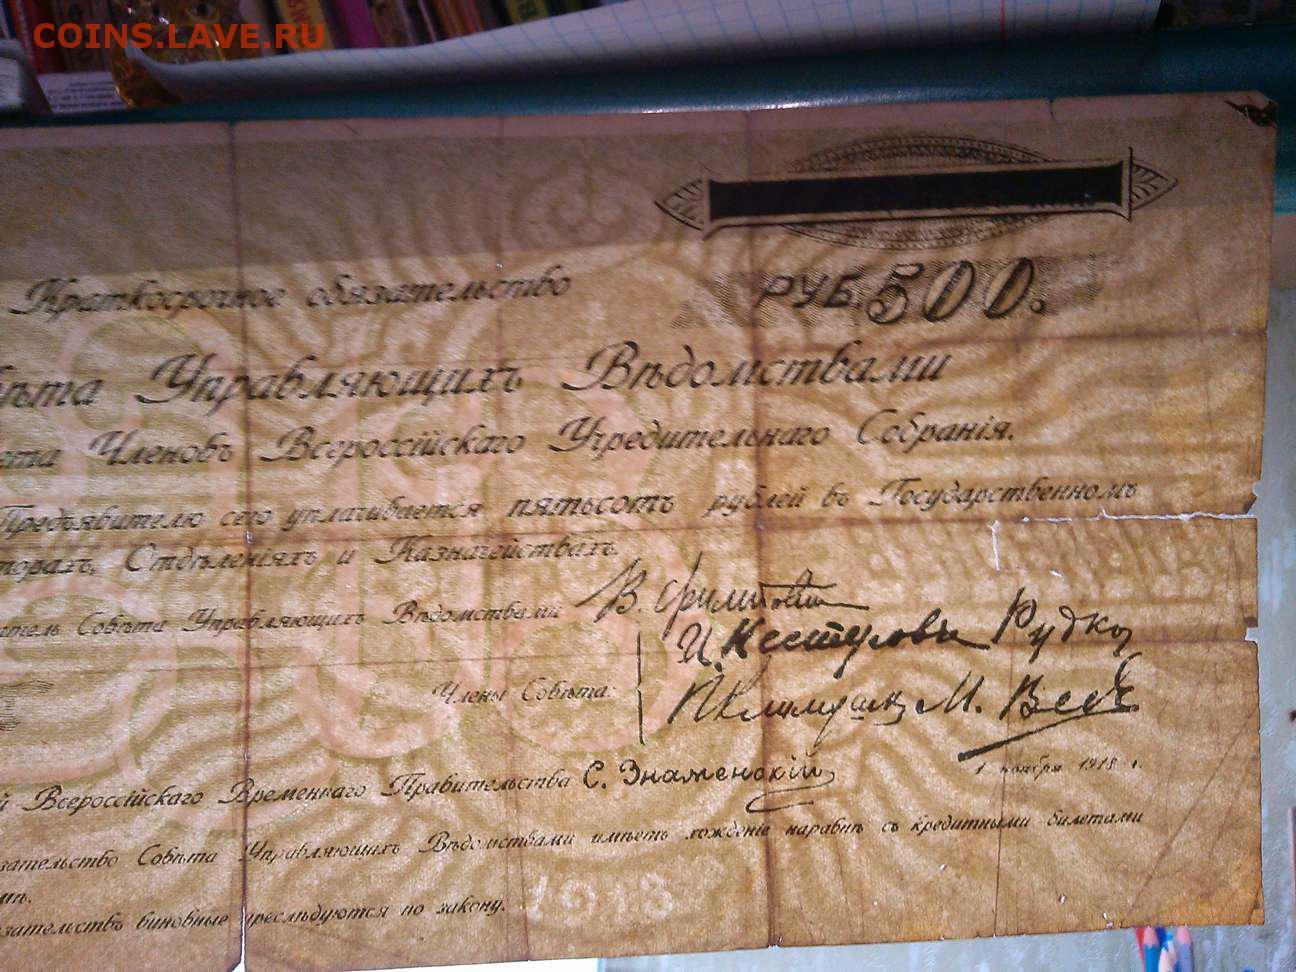 COINS.LAVE.RU
Краткосрочное обязательство
РУБ. 500.
ѣта Управляющихъ Вѣдомствами
Членовъ Всероссійскаго Учредительнаго Собранія.
Предъявителю сего уплачивается пятьсотъ рублей въ Государственномъ
торахъ, Отдѣленіяхъ и Казначействахъ.
атель Совѣта Управляющихъ Вѣдомствами В. Филиповскій
И. Нестеровъ Рудко
Члены Совѣта: П. Климушкинъ М. Веденяпинъ
й Всероссійскаго Временнаго Правительства С. Знаменскій
1 ноября 1918 г.
зательство Совѣта Управляющихъ Вѣдомствами имѣетъ хожденіе наравнѣ съ кредитными билетами
ми.
зательствъ виновные преслѣдуются по закону.
1918